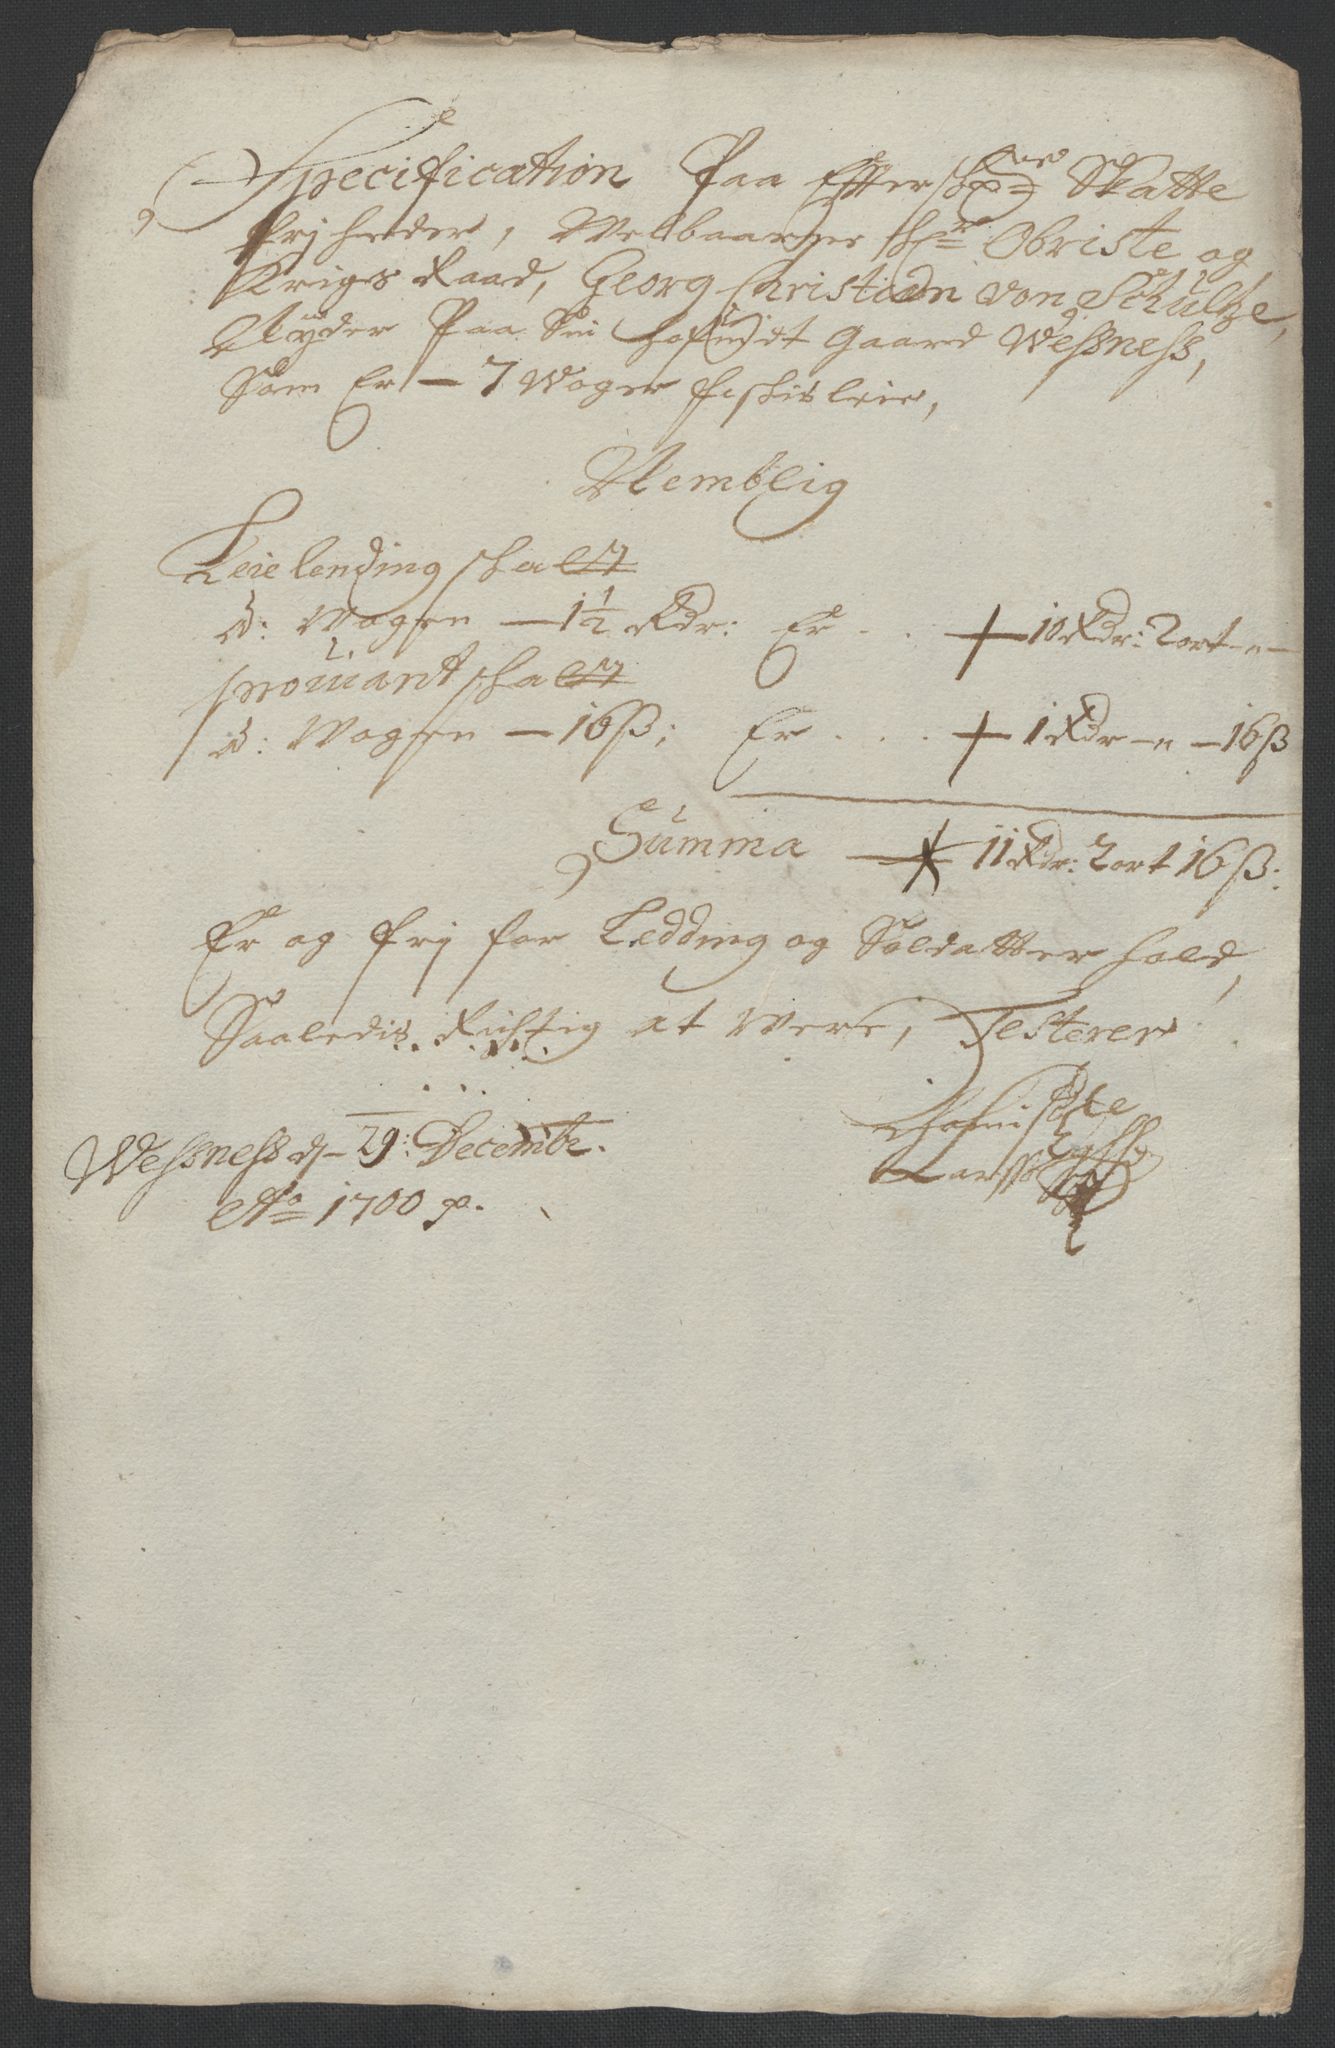 Specification Paa Efterschr: Skatte
frj heder, Welbaarne Hr Obriste og
Krigs Raad, Georg Christian von Schültze,
Nyder Paa Sin Gaard Wessness,
Som Er — 7 Woger fischis leie,
Nemblig
Leie lending schatt
à: Wogen — 1½ Rdr: Er . . 10 Rdr: 2 ort - n -
prouiant schatt
à: Wogen — 16 ß; Er . . . 1 Rdr - n - 16 ß
Summa — 11 Rdr: 2 ort 16 ß:
Er og frj for Ledding og Soldatter hold,
Saaledis Rictig at Were, Testerer
Wessness d - 29: Decembr.
Ao 1700 p.